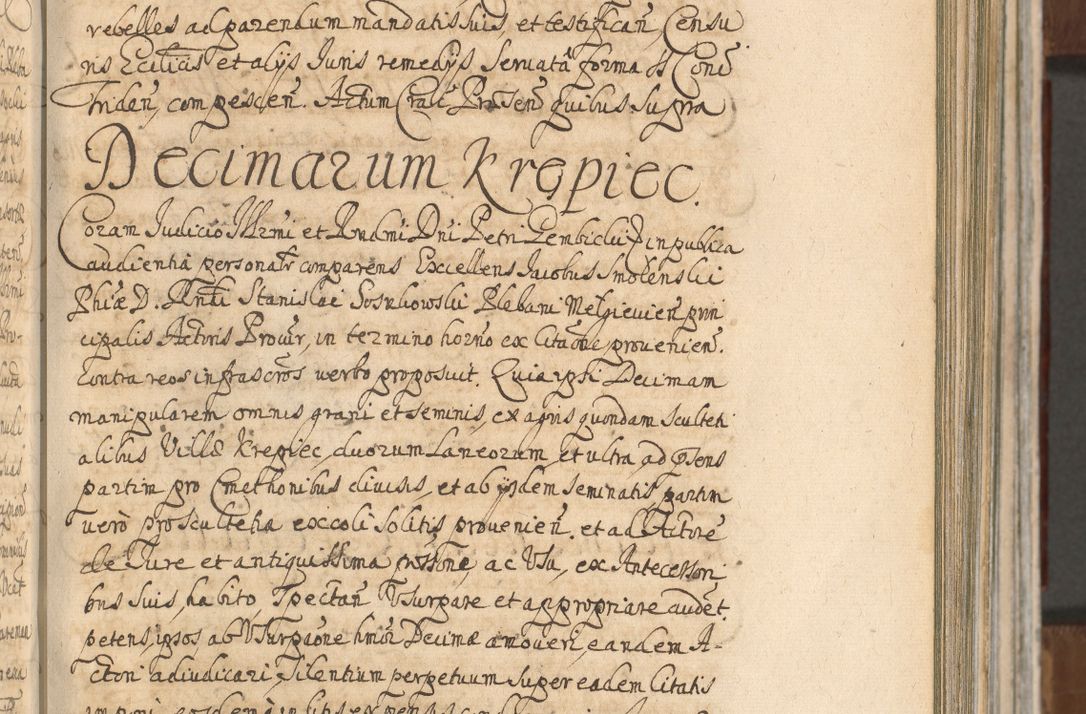 rebelles ad parendum mandatis suis, et testifican̄, Censu
ris Eccl̄icis et alijs Juris remedijs servatâ forma S Conc̄
Triden̄, compescen̄. Actum Crac̄ Præsen̄ quibus supra
Decimarum Krępiec.
Coram Judicio Illr̄mi et Rndmi Dn̄i Petri Gembicki Ep̄i in publica
audientiâ personal̄r comparens Excellens Jacobus Smolenski
Phiæ D. Rn̄di Stanislai Sosnkowski Plebani Melgievien̄ prin
cipalis Actoris Procur̄, in termino horno ex Citāone provenien̄.
Contra reos infrascr̄os verbo proposuit. Quia ipsi Decimam
manipularem omnis grani et seminis, ex agris quondam Sculteti
alibus Villæ Krepiec, duorum Laneorum, et ultra, ad p̄sens
partim pro Cmethonibus divisis, et ab ijsdem seminatis, partim
verò pro Scultetia excoli solitis, provenien̄. et ad Actorē
de Jure et antiquissima poss̄one, ac Usu, ex Antecessori
bus suis, habito, spectan̄ Usurpare et appropriare audet.
petens, ipsos ab Usurpāone hmōi Decimæ amoveri, eandem A-
ctori adiudicari, Silentium perpetuum super eadem Citatis